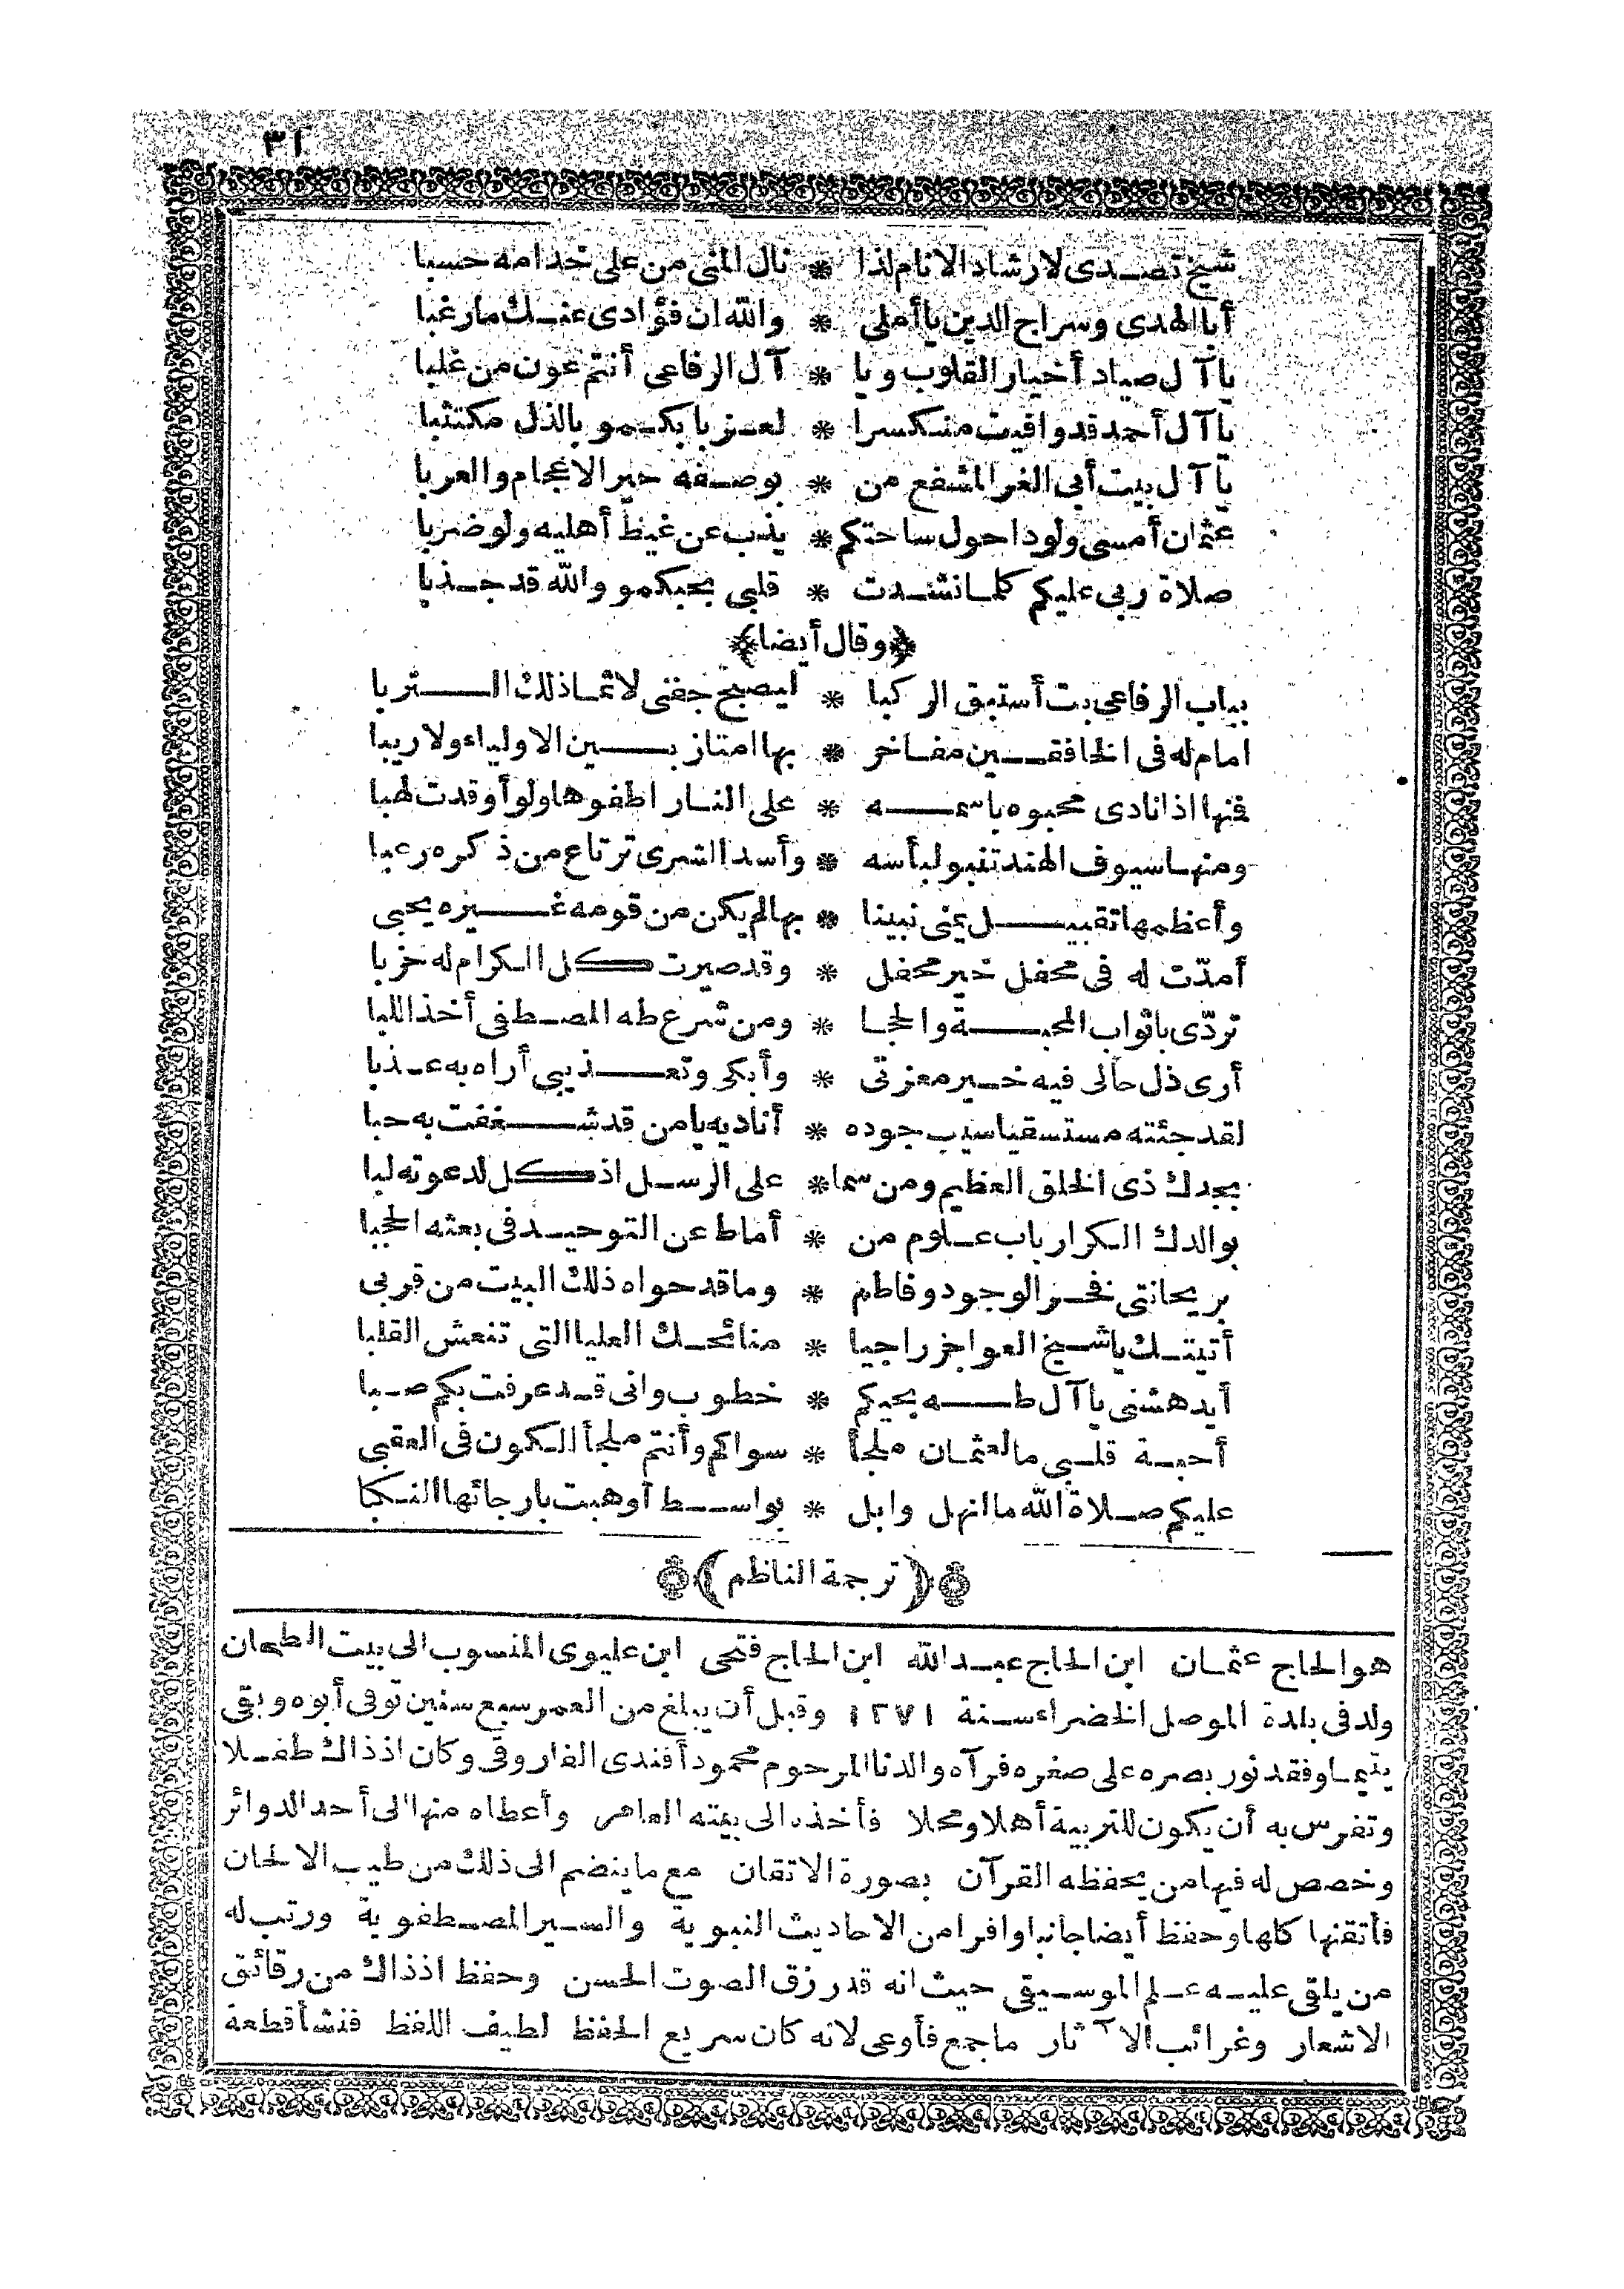 ٣١
شيخ تصدى لارشاد الانام لذا * نال المنى من على خدامه حسبا
أبا الهدى وسراج الدين يا أملى * والله ان فؤادى عنك ما رغبا
يا آل صياد أخيار القلوب ويا * آل الرفاعى أنتم عون من غلبا
يا آل أحمد قد وافيت منكسرا * لعز بابكمو بالذل مكتئبا
يا آل بيت أبى الغر المشفع من * بوصفه حير الاعجام والعربا
عثمان أمسى ولودا حول ساحتكم * يذب عن غيظ أهليه ولو ضربا
صلاة ربى عليكم كلما نشدت * قلبى بحبكمو والله قد جذبا
﴿وقال أيضا﴾
بباب الرفاعى بت أستبق الركبا * ليصبح جفنى لاثما ذلك التربا
امام له فى الخافقين مفاخر * بها امتاز بين الاولياء ولا ريبا
فنها اذا نادى محبوه باسمه * على النار اطفوها ولو أوقدت لهبا
ومنها سيوف الهند تنبو لبأسه * وأسد الشرى ترتاع من ذكره رعبا
وأعظمها تقبيل يمنى نبينا * بها لم يكن من قومه غيره يحبى
أمدّت له فى محفل خير محفل * وقد صيرت كل الكرام له حزبا
تردّى باثواب المحبة والحجا * ومن شرع طه المصطفى أخذ اللبا
أرى ذل حالى فيه خير معزتى * وأبكى وتعذيبى أراه به عذبا
لقد جئته مستسقيا سيب جوده * أناديه يا من قد شغفت به حبا
بجدك ذى الخلق العظيم ومن سما * على الرسل اذ كل لدعوته لبا
بوالدك الكرار باب علوم من * أماط عن التوحيد فى بعثه الحجبا
بريحانتى فخر الوجود وفاطم * وما قد حواه ذلك البيت من قربى
أتيتك يا شيخ العواجز راجيا * منائحك العليا التى تنعش القلبا
أيدهشنى يا آل طه بحيكم * خطوب وانى قد عرفت بكم صبا
أحبة قلبى ما لعثمان ملجأ * سواكم وأنتم ملجأ الكون فى العقبى
عليكم صلاة الله ما انهل وابل * بواسط أو هبت بارجائها النكبا
﴿ترجمة الناظم﴾
هو الحاج عثمان ابن الحاج عبد الله ابن الحاج فتحى ابن عليوى المنسوب الى بيت الطحان
ولد فى بلدة الموصل الخضراء سنة ١٢٧١ وقبل أن يبلغ من العمر سبع سنين توفى أبوه وبقى
يتيما وفقد نور بصره على صغره فرآه والدنا المرحوم محمود أفندى الفاروقى وكان اذ ذاك طفلا
وتفرس به أن يكون للتربية أهلا ومحلا فأخذه الى بيته العامر وأعطاه منها الى أحد الدوائر
وخصص له فيها من يحفظه القرآن بصورة الاتقان مع ما ينضم الى ذلك من طيب الالحان
فأتقنها كلها وحفظ أيضا جانبا وافرا من الاحاديث النبوية والسير المصطفوية ورتب له
من يلقى عليه علم الموسيقى حيث انه قد رزق الصوت الحسن وحفظ اذ ذاك من رقائق
الاشعار وغرائب الآثار ما جمع فأوعى لانه كان سريع الحفظ لطيف اللفظ فنشأ قطعة